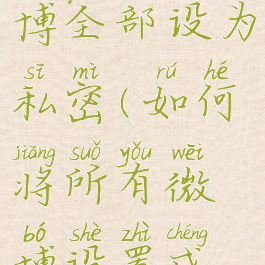 博全部设为
sī mì rú hé
私密(如何
jiāng suǒ yǒu wēi
将所有微
bó shè zhì chéng
博设置成